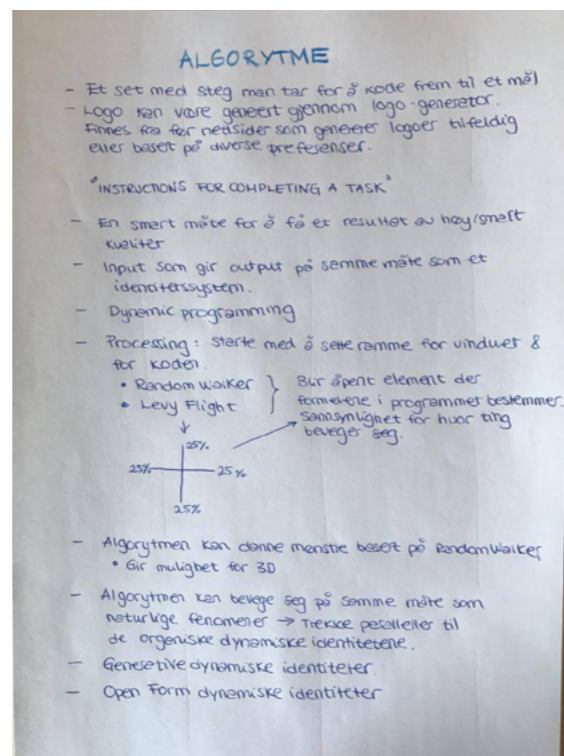 ALGORYTME
- Et set med steg man tar for å kode frem til et mål
- Logo kan være generert gjennom logo-generator.
Finnes fra før nettsider som genererer logoer tilfeldig
eller basert på diverse preferenser.
"INSTRUCTIONS FOR COMPLETING A TASK"
- En smart måte for å få et resultat av høy/smart
kvalitet
- Input som gir output på samme måte som et
identitetssystem.
- Dynamic programming
- Processing: starte med å sette ramme for vinduet &
for koden.
• Random Walker
• Levy Flight
Blir åpent element der
formelene i programmet bestemmer.
Sannsynlighet for hvor ting
beveger seg.
25%
25% 25%
25%
- Algorytmen kan danne mønstre basert på RandomWalker,
• Gir mulighet for 3D
- Algorytmen kan bevege seg på samme måte som
naturlige fenomener → Trekke paralleller til
de organiske dynamiske identitetene.
- Generative dynamiske identiteter.
- Open Form dynamiske identiteter